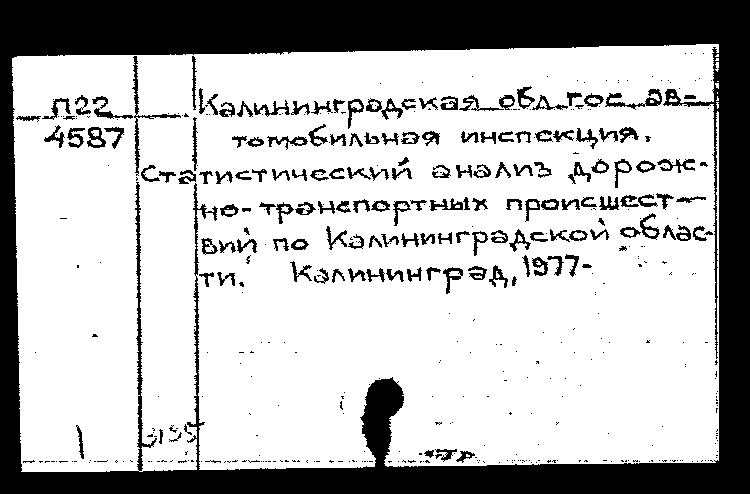 П22
4587
Калининградская обл. гос. ав-
томобильная инспекция.
Статистический анализ дорож-
но-транспортных происшест-
вий по Калининградской облас-
ти. Калининград, 1977-
3155